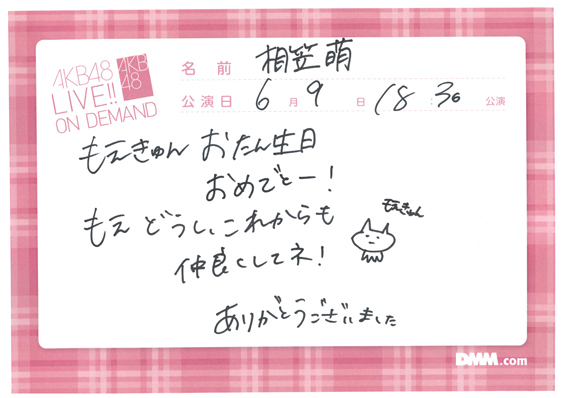 AKB48
LIVE!!
ON DEMAND
AKB
48
名前 相笠萌
公演日 6月9日 18:30公演
もえきゅん おたん生日
おめでとー!
もえ どうし、これからも
仲良くしてネ!
もえきゅん
ありがとうございました
DMM.com